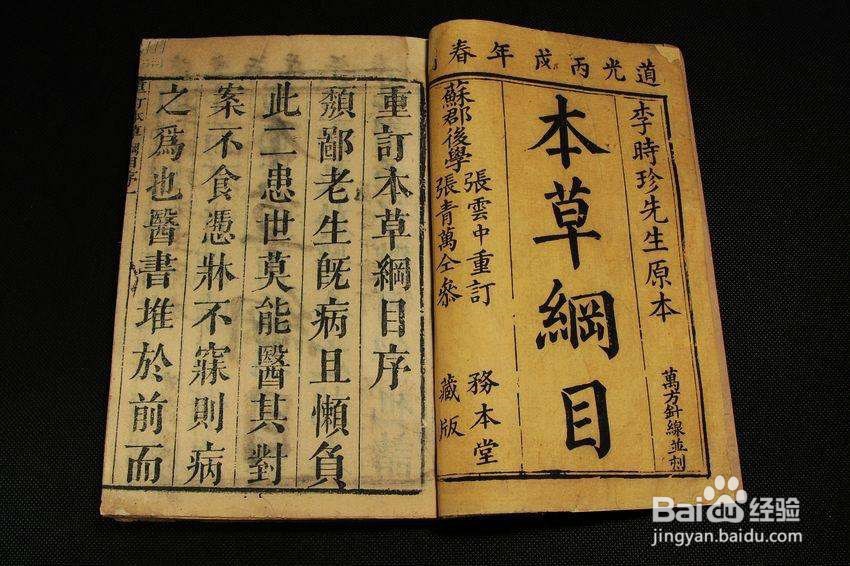 道光丙戌年春
李時珍先生原本
萬方針線並刻
本草綱目
張雲中重訂
蘇郡後學
張青萬仝參
務本堂
藏版
重訂本草綱目序
頹鄙老生旣病且懶負
此二患世莫能醫其對
案不食憑牀不寐則病
之爲也醫書堆於前而
Baidu经验
jingyan.baidu.com